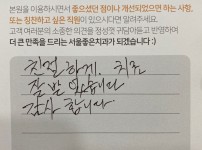 본원을 이용하시면서 좋으셨던 점이나 개선되었으면 하는 사항,
또는 칭찬하고 싶은 직원이 있으시다면 알려주세요.
고객 여러분의 소중한 의견을 정성껏 귀담아듣고 반영하여
더 큰 만족을 드리는 서울좋은치과가 되겠습니다 :)
친절하게. 치료
잘 받았습니다
감사 합니다